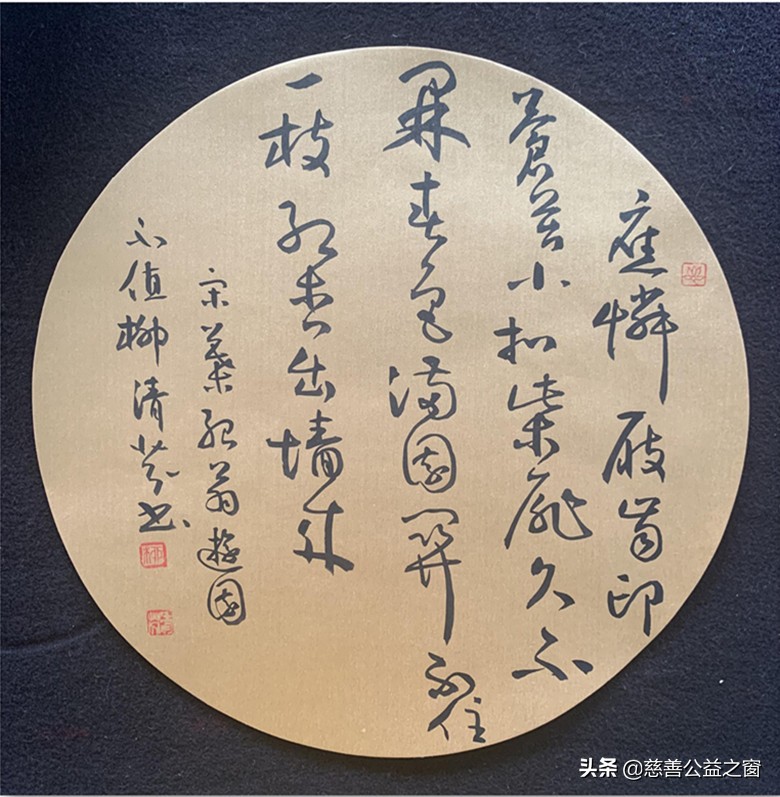 應憐屐齒印
蒼苔小扣柴扉久不
開春色滿園關不住
一枝紅杏出墻來
宋葉紹翁遊園
不值柳清芬書
头条 @慈善公益之窗